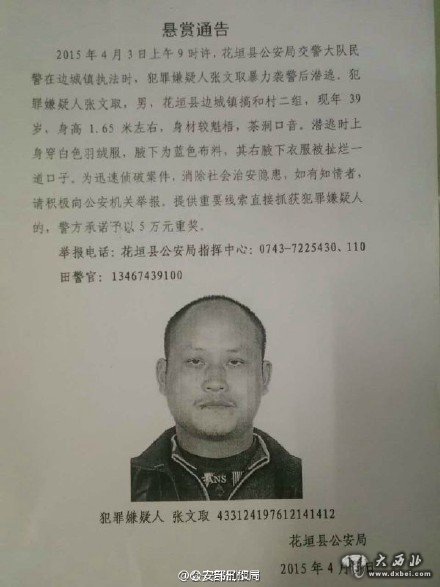 悬赏通告
2015 年 4 月 3 日上午 9 时许,花垣县公安局交警大队民
警在边城镇执法时,犯罪嫌疑人张文取暴力袭警后潜逃。犯
罪嫌疑人张文取,男,花垣县边城镇搞和村二组,现年 39
岁,身高 1.65 米左右,身材较魁梧,茶洞口音。潜逃时上
身穿白色羽绒服,腋下为蓝色布料,其右腋下衣服被扯烂一
道口子。为迅速侦破案件,消除社会治安隐患,如有知情者,
请积极向公安机关举报。提供重要线索直接抓获犯罪嫌疑人
的,警方承诺予以 5 万元重奖。
举报电话:花垣县公安局指挥中心:0743-7225430、110
田警官:13467439100
犯罪嫌疑人 张文取 433124197612141412
花垣县公安局
2015 年 4 月 日
大西北
www.dxbei.com